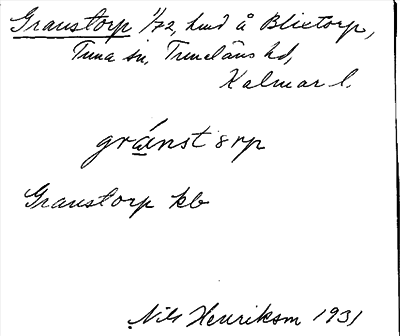 Granstorp 1/72, hmd å Blixtorp,
Tuna sn, Tunaläns hd,
Kalmar l.
gránst𝑜rp
Granstorp kb
Nils Henriksson 1931